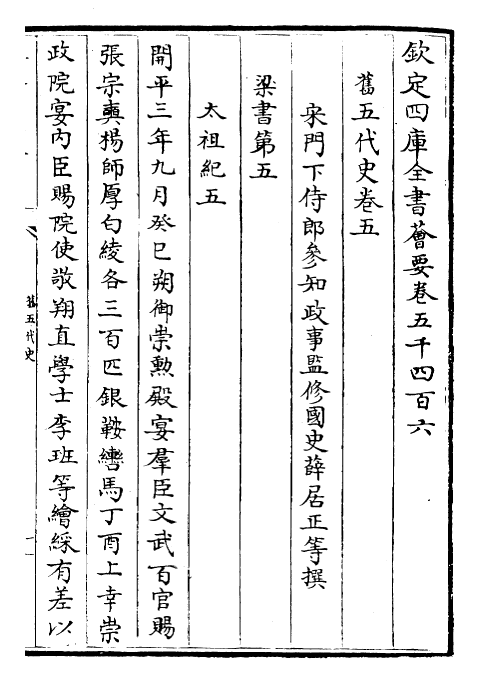 欽定四庫全書薈要卷五千四百六
舊五代史卷五
宋門下侍郎參知政事監修國史薛居正等撰
梁書第五
太祖紀五
開平三年九月癸巳朔御崇勲殿宴羣臣文武百官賜
張宗奭楊師厚白綾各三百匹銀鞍轡馬丁酉上幸崇
政院宴内臣賜院使敬翔直學士李班等繒綵有差以
舊五代史
一